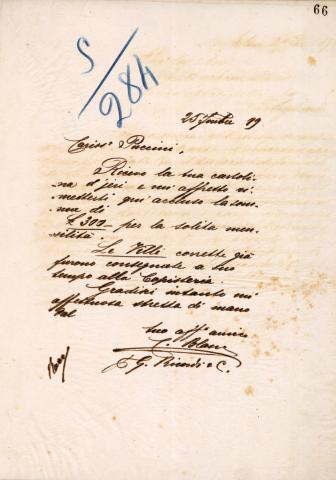 66
S/284
25 9mbre 89
Cariss. Puccini,
Ricevo la tua cartoli-
na d'jeri e mi affretto ri-
metterti qui acclusa la som-
ma di
£ 300 per la solita men-
silità.
Le Villi corrette già
furono consegnate a suo
tempo alla Copisteria.
Gradisci intanto un'
affettuosa stretta di mano
dal
tuo aff. amico
C. Blanc
p G. Ricordi & C.